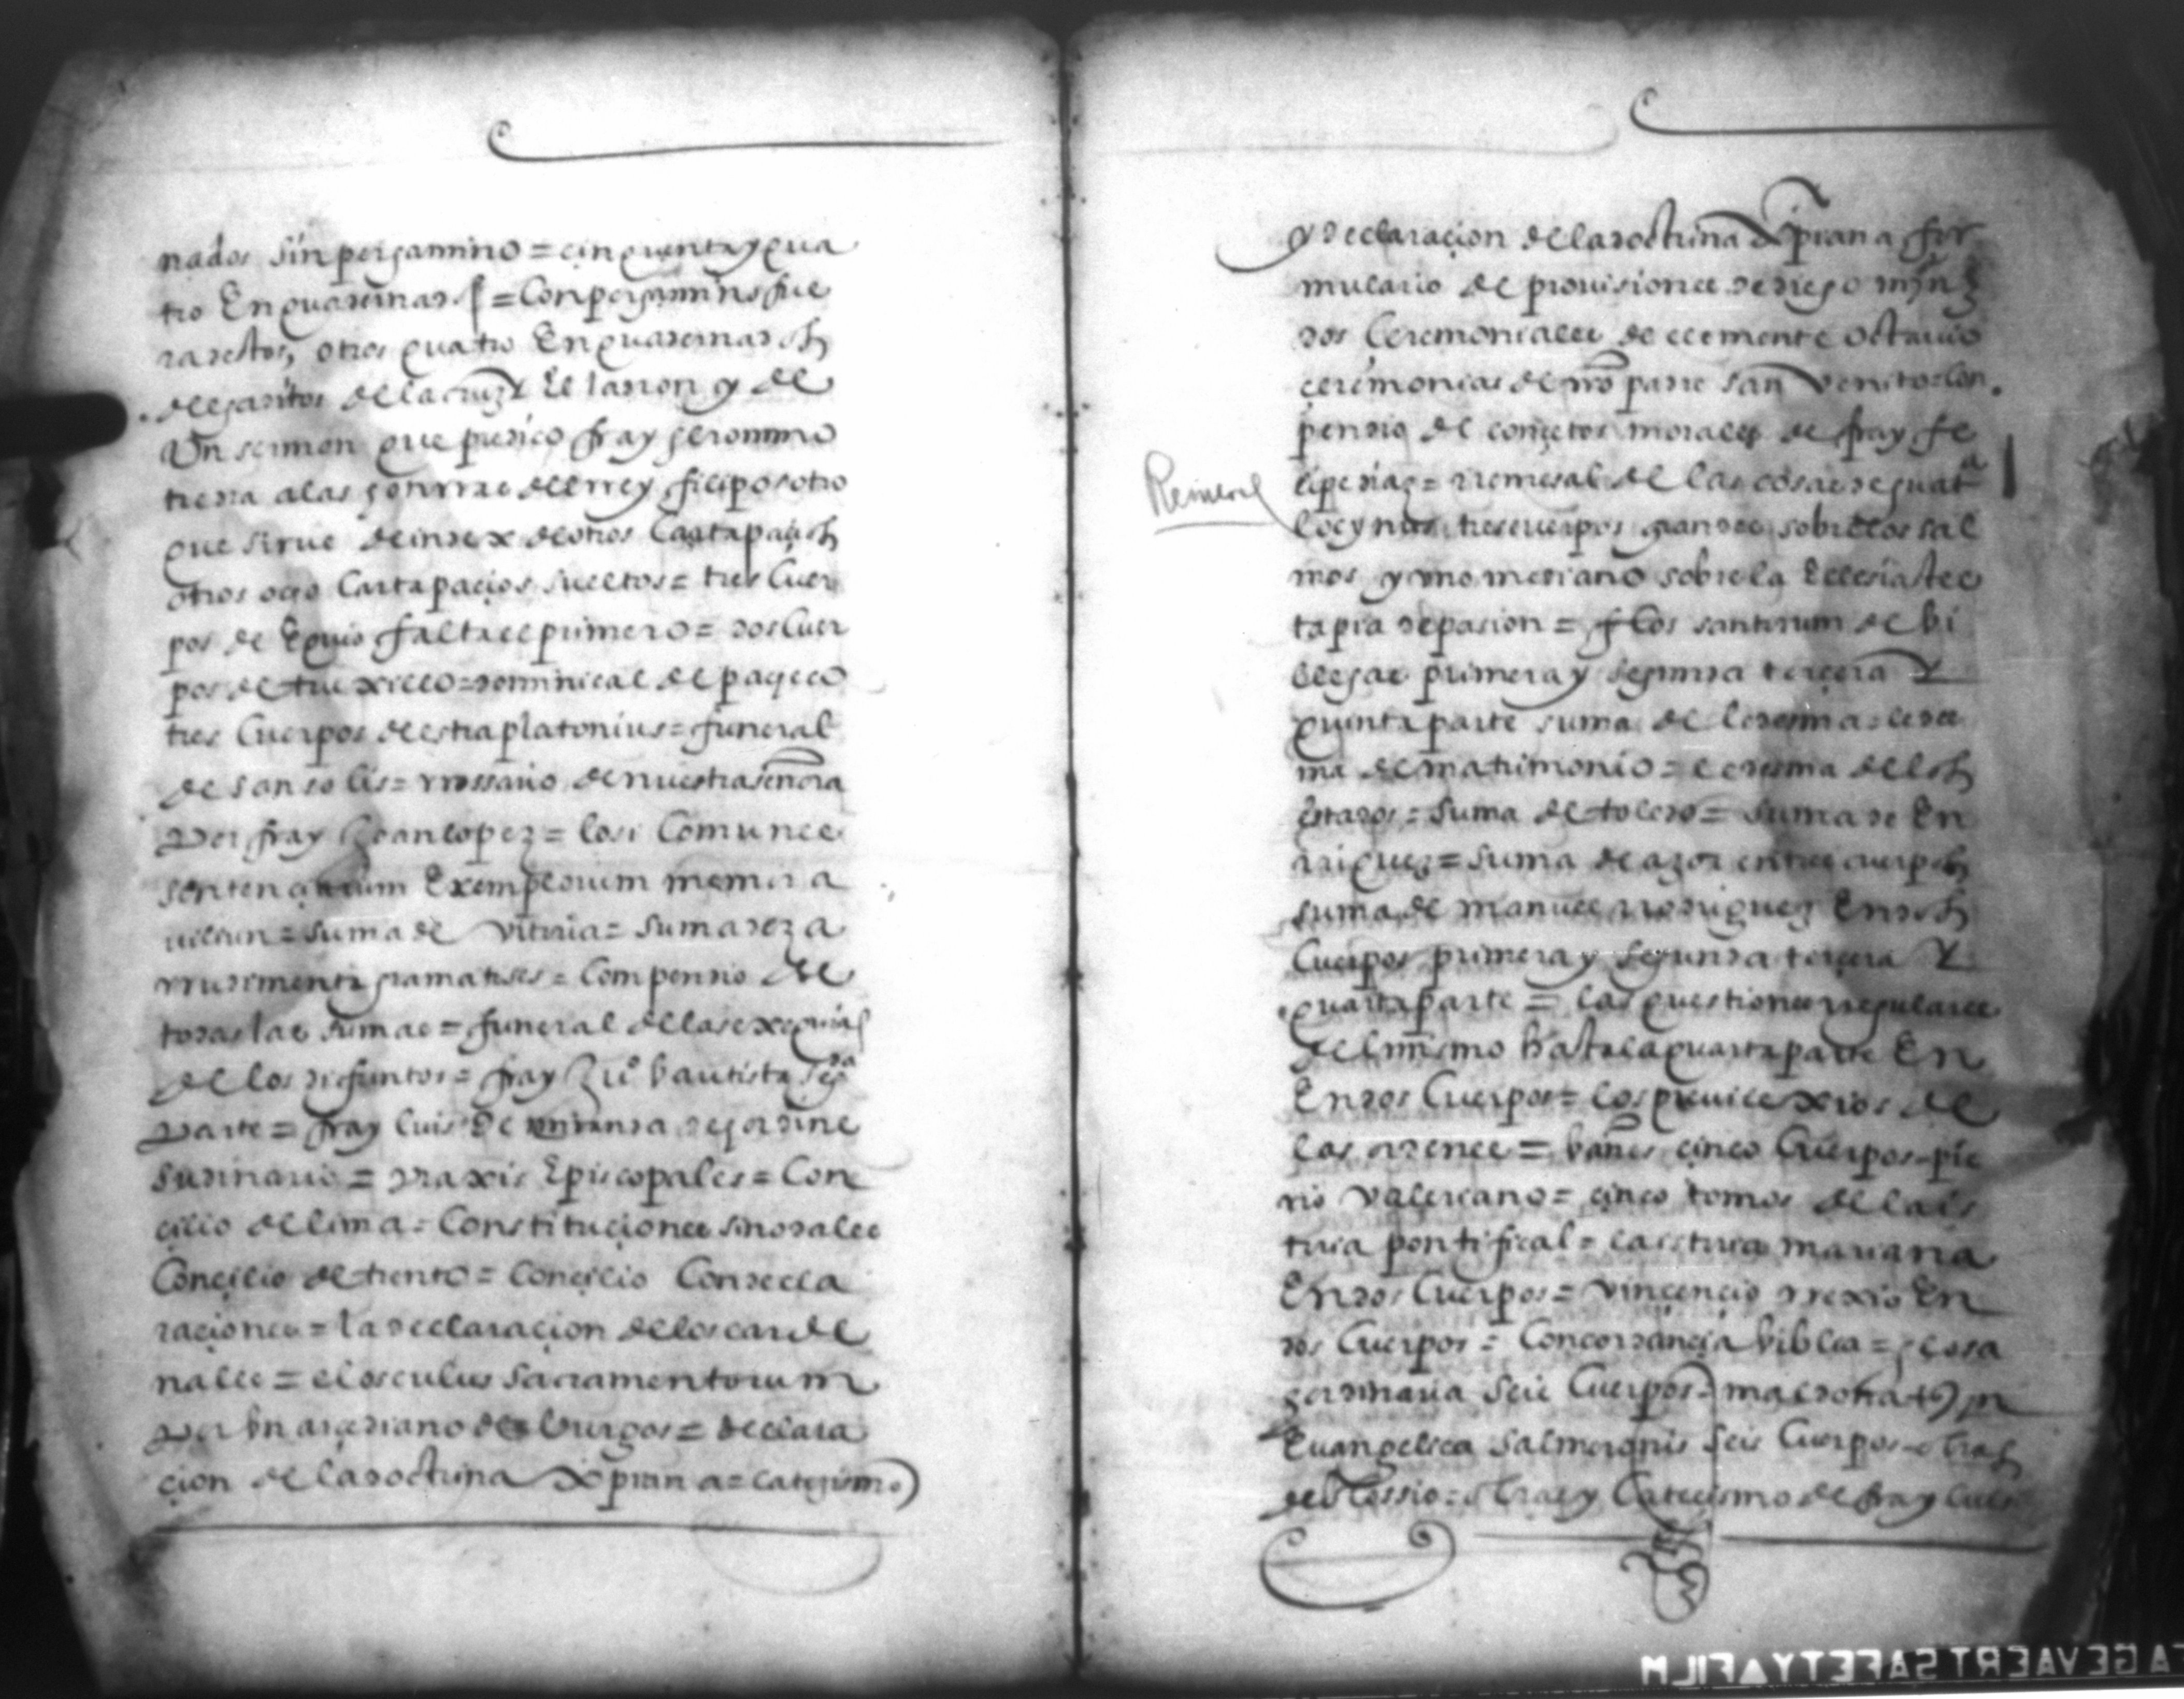 nados sin pergamino = cinquenta y qua
tro Enquadernados = Con pergamino fue
ra destos, otros quatro Enquadernados
de la cruz El ladron y de
Un sermon que predico fray geronimo
a las del rrey filipo = otro
que sirue de index de otros Cartapacios
otros ocho Cartapacios sueltos = tres Cuer
pos de Equio falta el primero = dos Cuer
pos de truxillo = dominical de pacheco
tres Cuerpos de estraplatonius = funeral
de san solis = rrossario de nuestra señora
por fray Joan lopez = losi Comunes
sentenciarum Exemplorum memora
uilium = suma de vitoria = suma de za
rrudimenta gramatises = Compendio de
todas las sumas = funeral de las exequias
de los difuntos = fray Juº bautista segda
parte = fray luis De miranda de jordine
judinario = praxis Episcopales = Con
cilio de lima = Constituciones sinodales
Concilio de trento = Concilio Con decla
raciones = la declaracion de los carde
nales = elosculus sacramentorum
por Un arcediano de burgos = declara
cion de la doctrina xpiana = catecismo
y declaracion de la doctrina xpiana for
mulario de prouisiones de diego mrnz
dos Ceremoniales de clemente octauo
ceremonias de nro padre san Venito = Con
pendio de concetos morales de fray fe
lipe diaz = rremesal de las cosas de guata
Remesal
locynus, tres cuerpos grandes sobre los sal
mos y uno mediano sobre la Eclesiastes
tapia de pasion = flos santorum de bi
llegas primera y segunda tercera Y
quinta parte suma de ledesma = ledes
ma de matrimonio = ledesma de los
Estados = Suma de toledo = suma de En
rriquez = suma de azor en tres cuerpos
suma de manuel rrodriguez En dos
Cuerpos primera y segunda tercera Y
quarta parte = las questiones rregulares
del mismo hasta la quarta parte En
En dos Cuerpos = los preuilexios de
las ordenes = bañes cinco Cuerpos = pie
rio Valeriano = cinco tomos de la is
toria pontifical = la istoria mariana
En dos Cuerpos = Vincencio rrexio En
dos Cuerpos = Concordancia biblia = glosa
hordinaria seis Cuerpos = maldonatus in
Euangelica Salmeronis seis Cuerpos = obras
de blossio = obras y Catecismo de fray luis
AGEVAERT SAFETY FILM